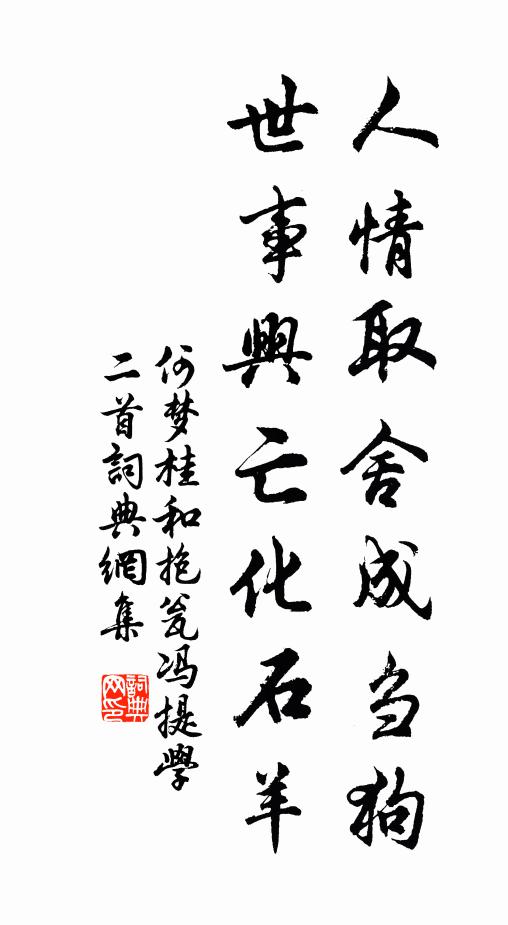 人情取舍成刍狗
世事興亡化石羊
何梦桂和抱瓮冯提學
二首詞典網集
詞典网印